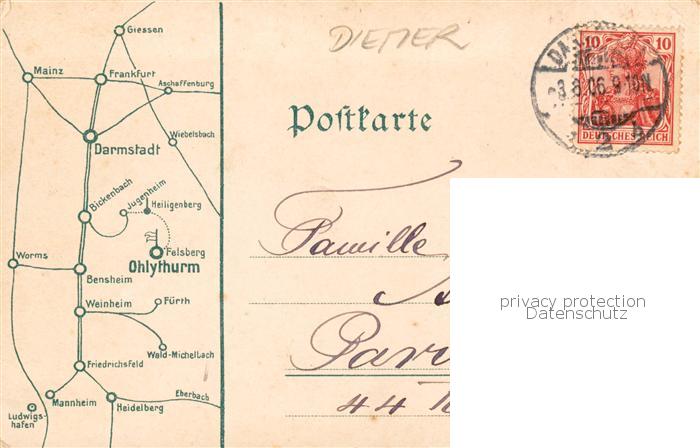 Giessen
Mainz
Frankfurt
Aschaffenburg
Wiebelsbach
Darmstadt
Bickenbach
Jugenheim
Heiligenberg
Felsberg
Ohlythurm
Worms
Bensheim
Weinheim
Fürth
Wald-Michelbach
Friedrichsfeld
Mannheim
Heidelberg
Eberbach
Ludwigs-
hafen
DIEMER
Postkarte
10 10
DEUTSCHES REICH
3.8.06.9-10N
Famille
Par
44
privacy protection
Datenschutz